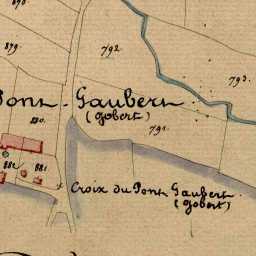 898
879.
792.
793.
Pont-Gaubert
(Gobert)
791.
880.
882
881
Croix du Pont Gaubert
(Gobert)